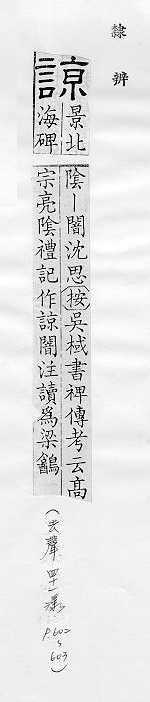 隸辨
諒
景北
海碑
陰丨闇沈思按吳棫書裨傳考云高
宗亮陰禮記作諒闇注讀為梁
(去聲 四十一漾
P.602
~
603)